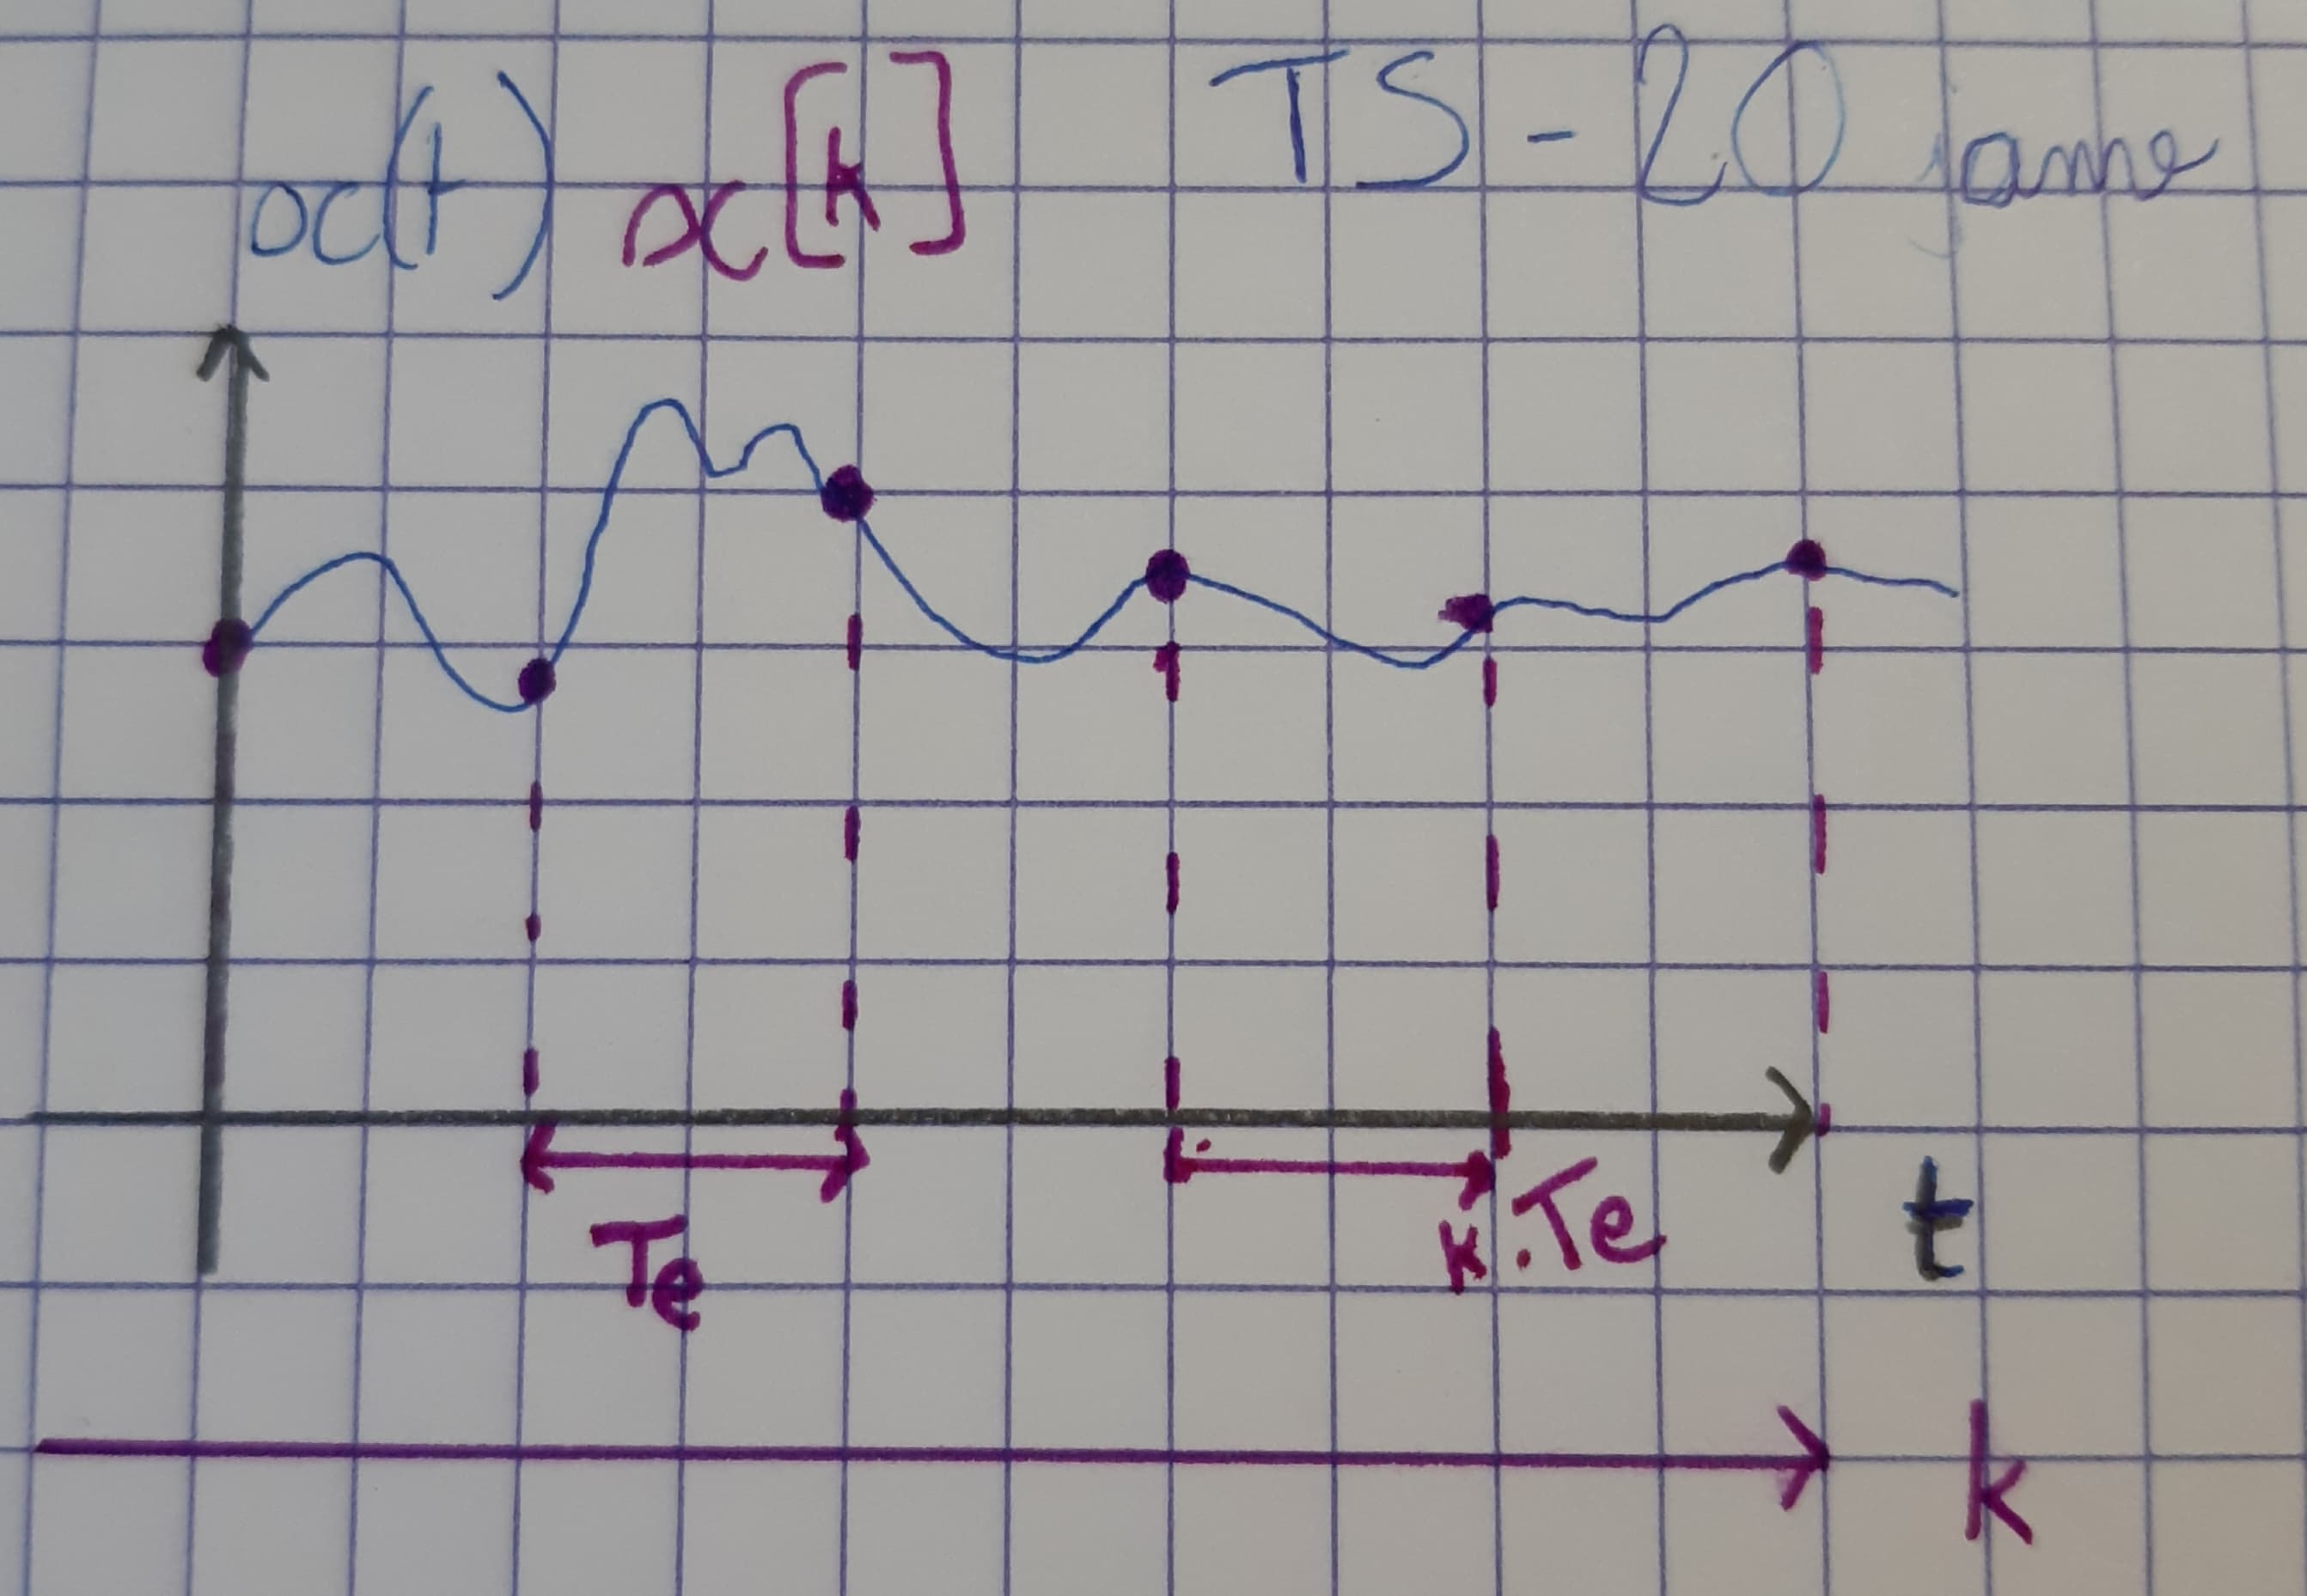 x(t) x[k] TS-20 jame
Te
k.Te
t
k